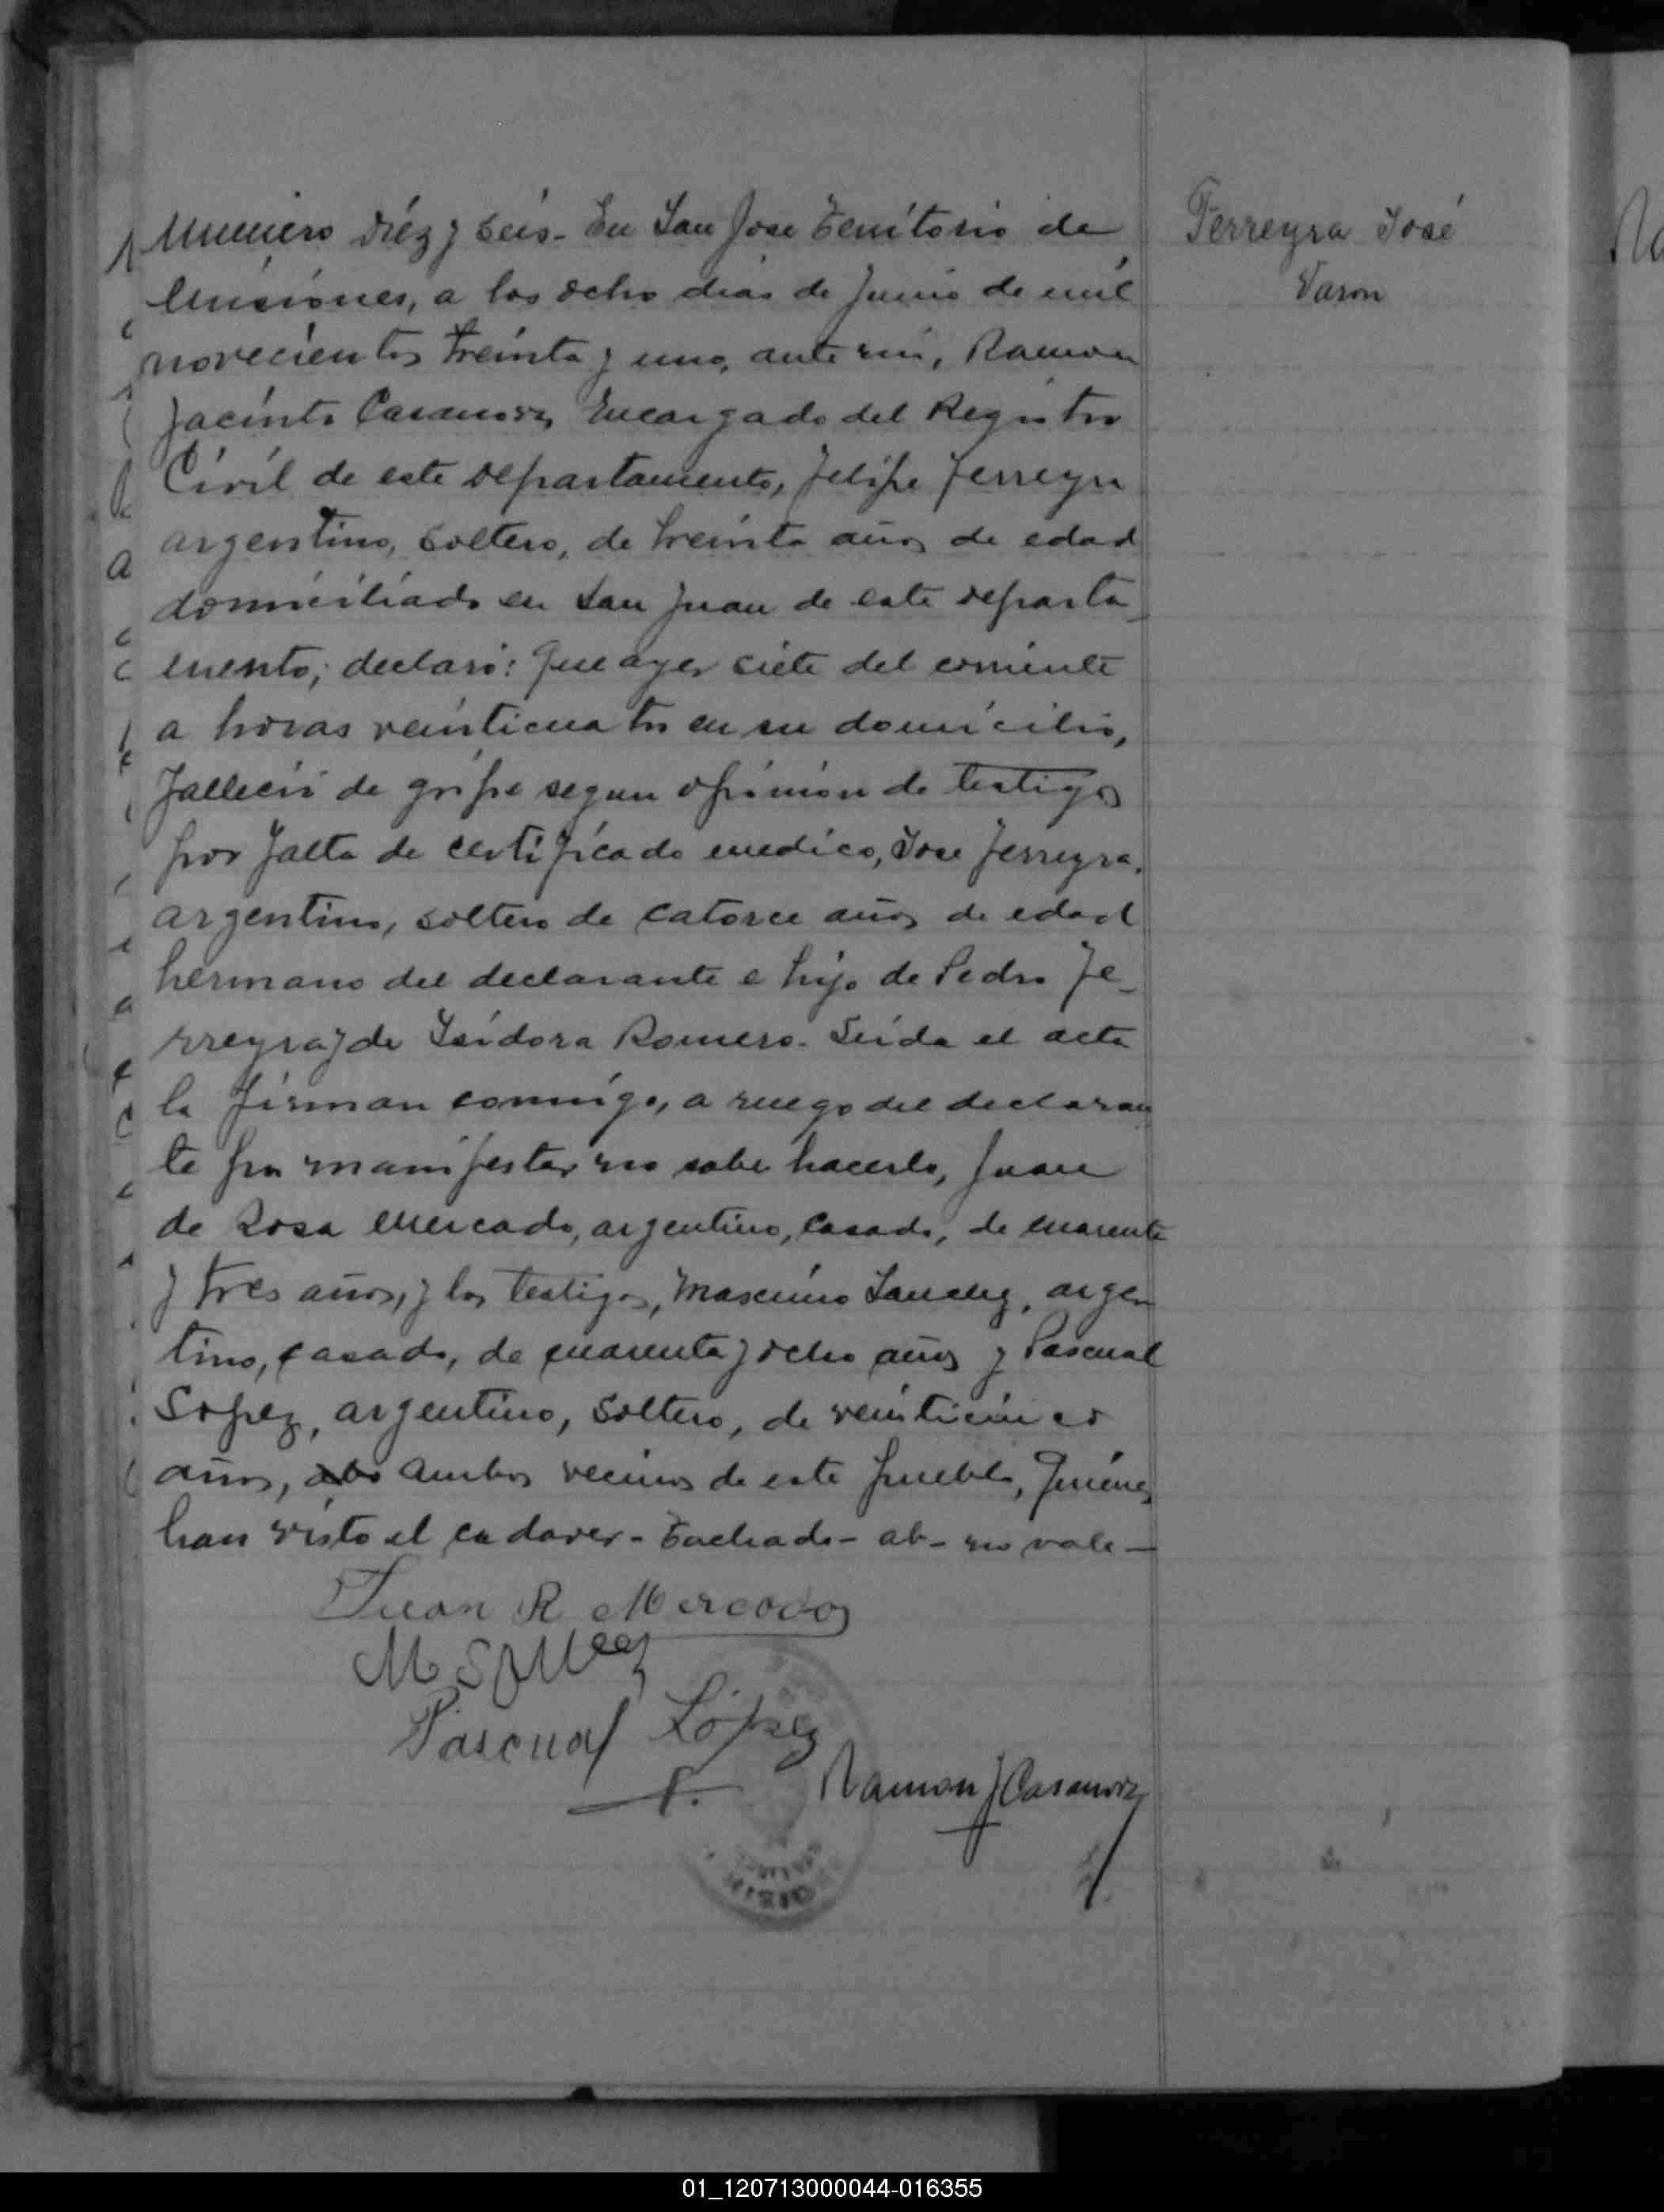 Numero diez y seis- En San Jose Territorio de
Misiones, a los ocho dias de Junio de mil
novecientos treinta y uno, ante mi, Ramon
Jacinto Casanova, Encargado del Registro
Civil de este departamento, Felipe Ferreyra
argentino, soltero, de treinta años de edad
domiciliado en San Juan de este departa_
mento; declaró: Que ayer siete del corriente
a horas veinticuatro en su domicilio,
falleció de gripe segun opinion de testigos
por falta de certificado medico, Jose Ferreyra,
argentino, soltero de catorce años de edad
hermano del declarante e hijo de Pedro Fe_
rreyra y de Isidora Romero- Leida el acta
la firman conmigo, a ruego del declaran
te por manifestar no saber hacerlo, Juan
de Rosa Mercado, argentino, casado, de cuarenta
y tres años, y los testigos, Maximo Sanchez, argen
tino, casado, de cuarenta y ocho años y Pascual
Lopez, argentino, soltero, de veinticinco
años, ambos vecinos de este pueblo, Quienes
han visto el cadaver- Tachado- ab- no vale-
Juan R Mercado
Pascual López
Ramon J Casanova
Ferreyra José
Varon
01_120713000044-016355